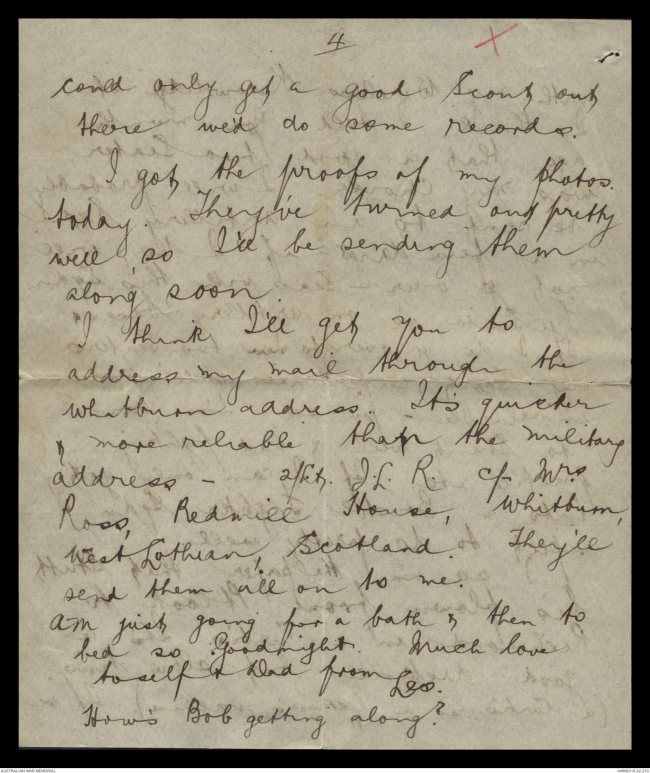 4
could only get a good Scout out
there we'd do some records.
I got the proofs of my photos.
today. They've turned out pretty
well, so I'll be sending them
along soon.
I think I'll get you to
address my mail through the
Whitburn address. It's quicker
& more reliable than the military
address - 2/Lt. J.L. R. c/- Mrs
Ross, Redmill House, Whitburn,
West Lothian, Scotland. They'll
send them all on to me.
Am just going for a bath & then to
bed so Goodnight. Much love
to self & Dad from Les.
How's Bob getting along?
AUSTRALIAN WAR MEMORIAL